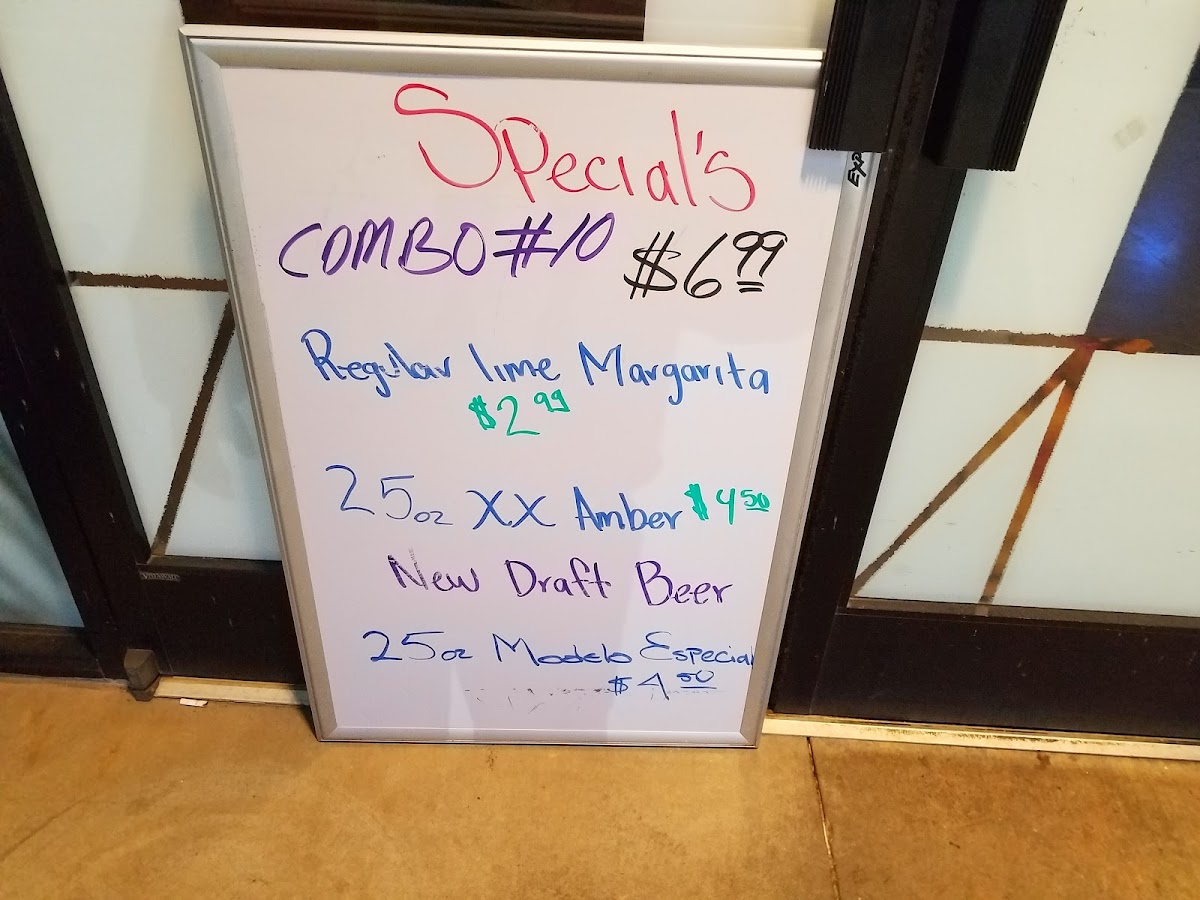 Special's
COMBO #10 $6.99
Regular lime Margarita
$2.99
25oz XX Amber $4.50
New Draft Beer
25oz Modelo Especial
$4.50